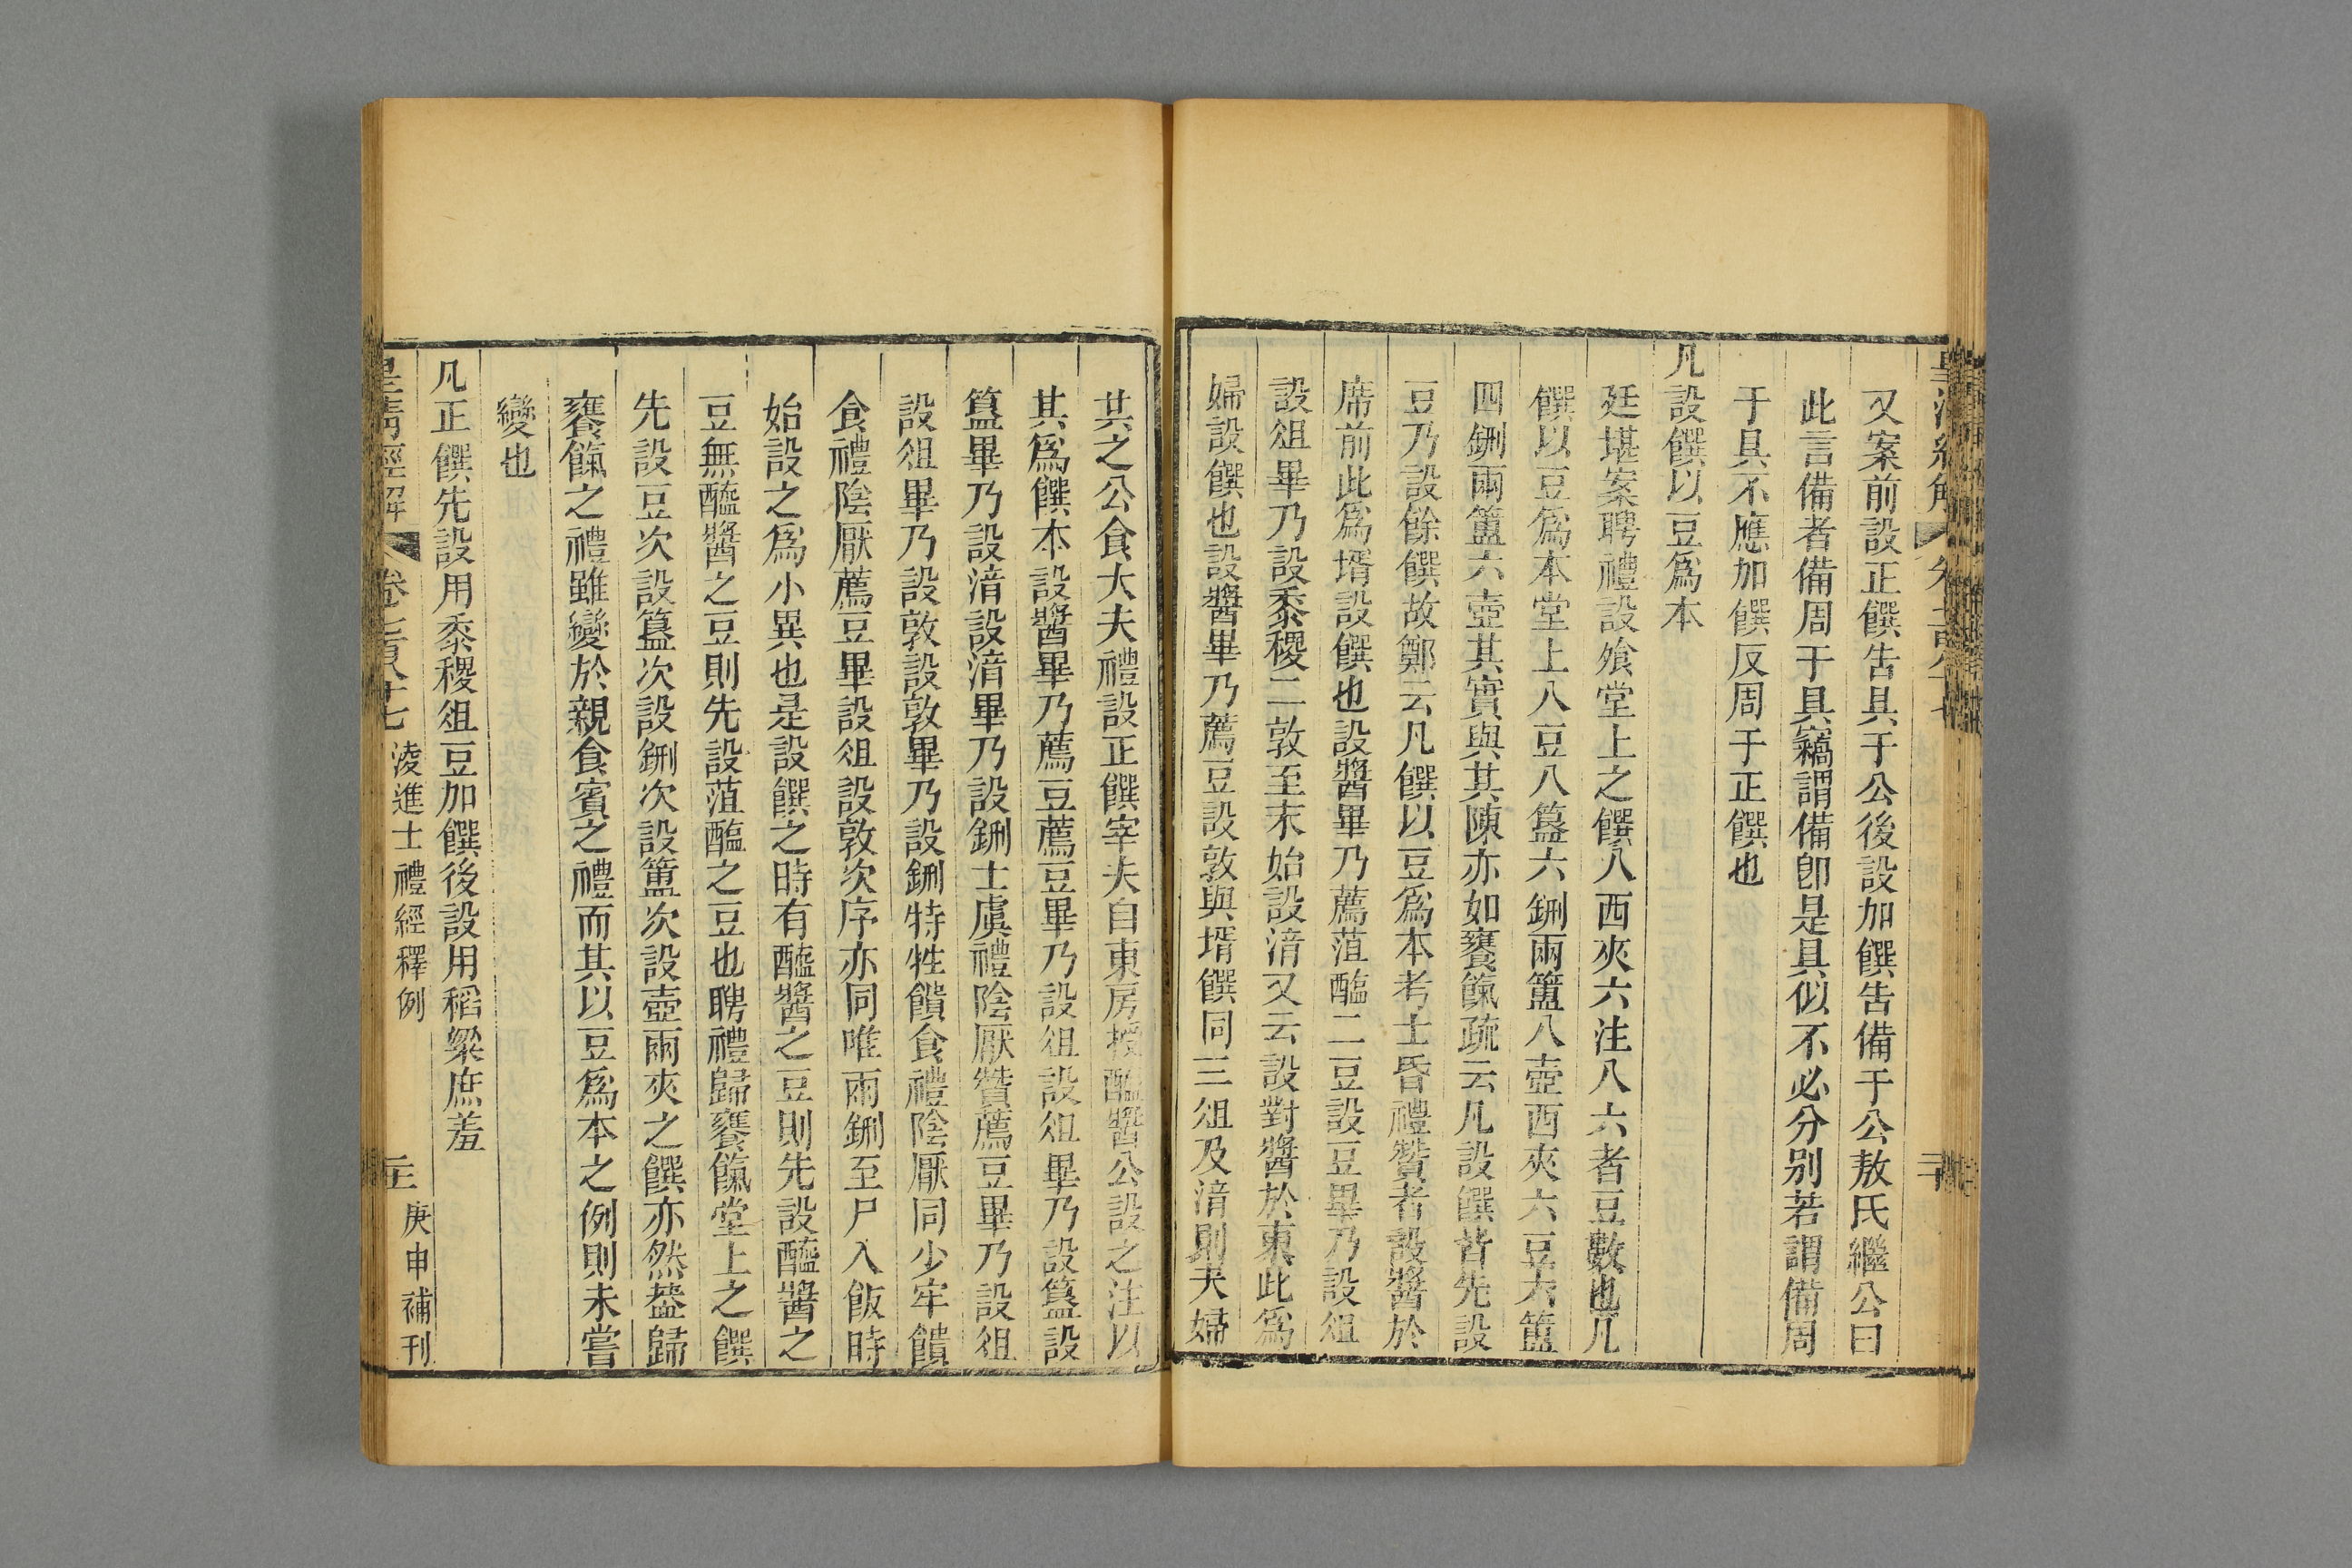 又案前設正饌告具于公後設加饌告備于公敖氏繼公曰
此言備者備周于具竊謂備卽是具似不必分别若謂備周
于具不應加饌反周于正饌也
凡設饌以豆爲本
廷堪案聘禮設飧堂上之饌八西夾六注八六者豆數也凡
饌以豆爲本堂上八豆八簋六鉶兩簠八壺西夾六豆六簋
四鉶兩簠六壺其實與其陳亦如饔餼疏云凡設饌皆先設
豆乃設餘饌故鄭云凡饌以豆爲本考士昏禮贊者設醬於
席前此爲壻設饌也設醬畢乃薦菹醢二豆設豆畢乃設俎
設俎畢乃設黍稷二敦至末始設湆又云設對醬於東此爲
婦設饌也設醬畢乃薦豆設敦與壻饌同三俎及湆則夫婦
共之公食大夫禮設正饌宰夫自東房授醯醬公設之注以
其爲饌本設醬畢乃薦豆薦豆畢乃設俎設俎畢乃設簋設
簋畢乃設湆設湆畢乃設鉶士虞禮陰厭贊薦豆畢乃設俎
設俎畢乃設敦設敦畢乃設鉶特牲饋食禮陰厭同少牢饋
食禮陰厭薦豆畢設俎設敦次序亦同唯兩鉶至尸入飯時
始設之爲小異也是設饌之時有醯醬之豆則先設醯醬之
豆無醯醬之豆則先設菹醢之豆也聘禮歸饔餼堂上之饌
先設豆次設簋次設鉶次設簠次設壺兩夾之饌亦然葢歸
饔餼之禮雖變於親食賓之禮而其以豆爲本之例則未嘗
變也
凡正饌先設用黍稷俎豆加饌後設用稻粱庶羞
皇清經解 卷七百八十七 淩進士禮經釋例 庚申補刊